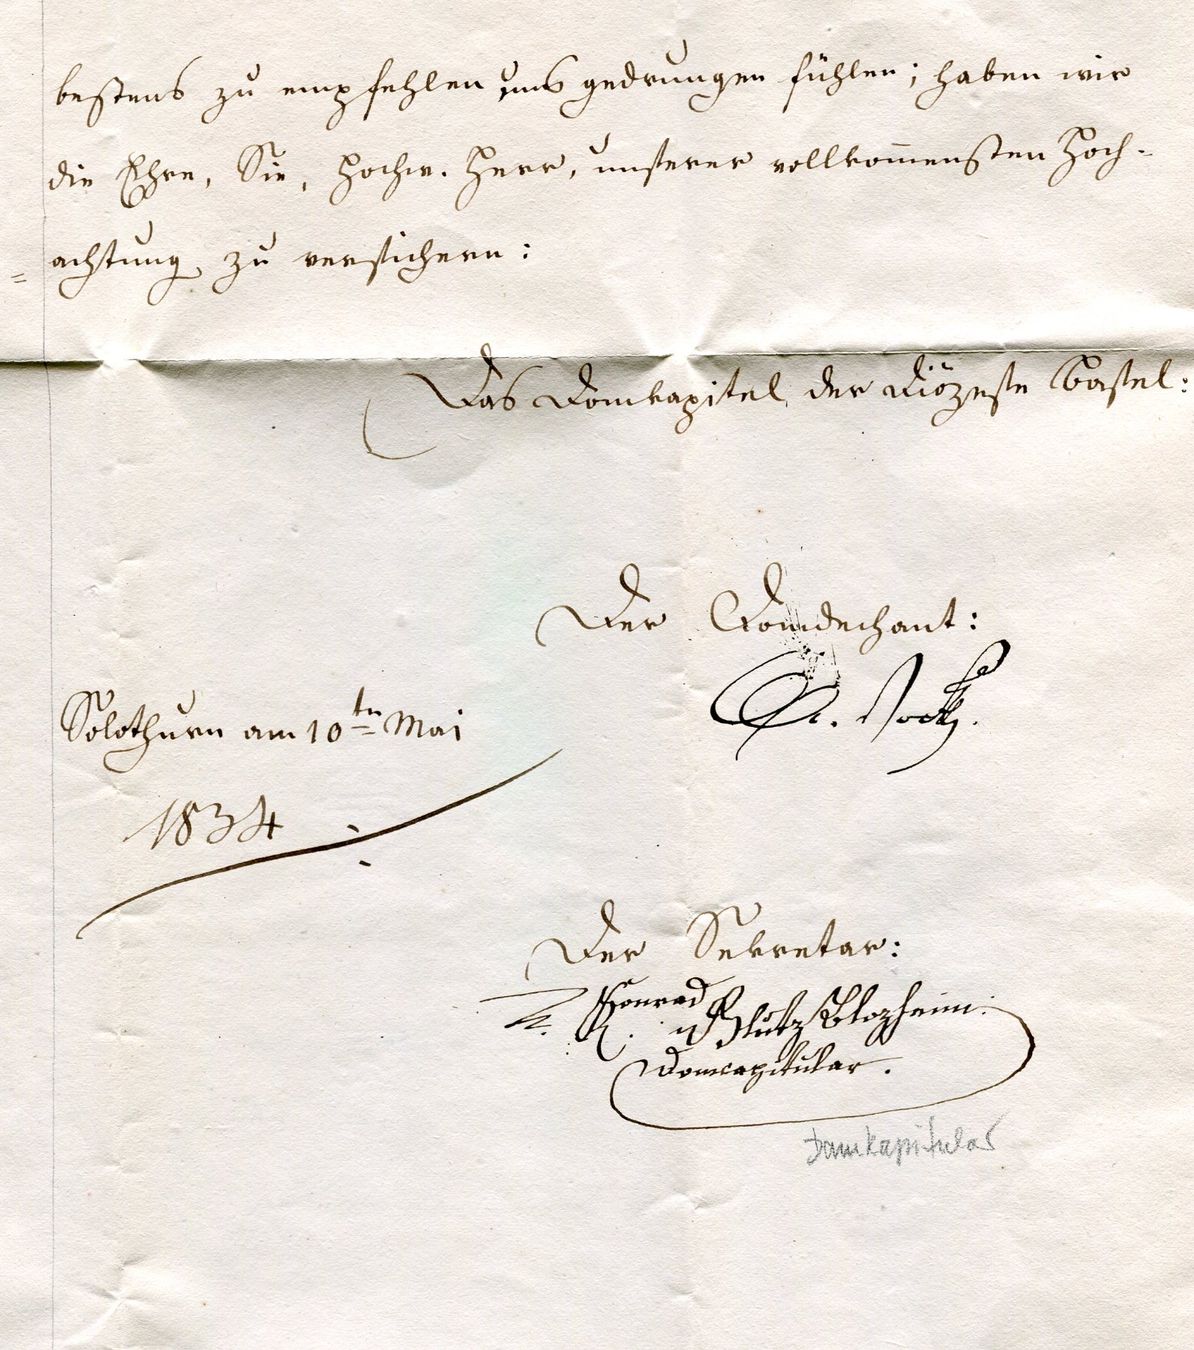 bestens zu empfehlen uns gedrungen fühlen; haben wir
die Ehre, Sie, Hochw. Herr, unserer vollkom̅ensten Hoch-
achtung zu versichern:
Das Domkapitel der Diözese Basel:
Der Domdechant:
A. Vock.
Solothurn am 10ten Mai
1834
Der Sekretar:
Konrad
Glutz Blozheim
Domcapitular.
Domkapitular